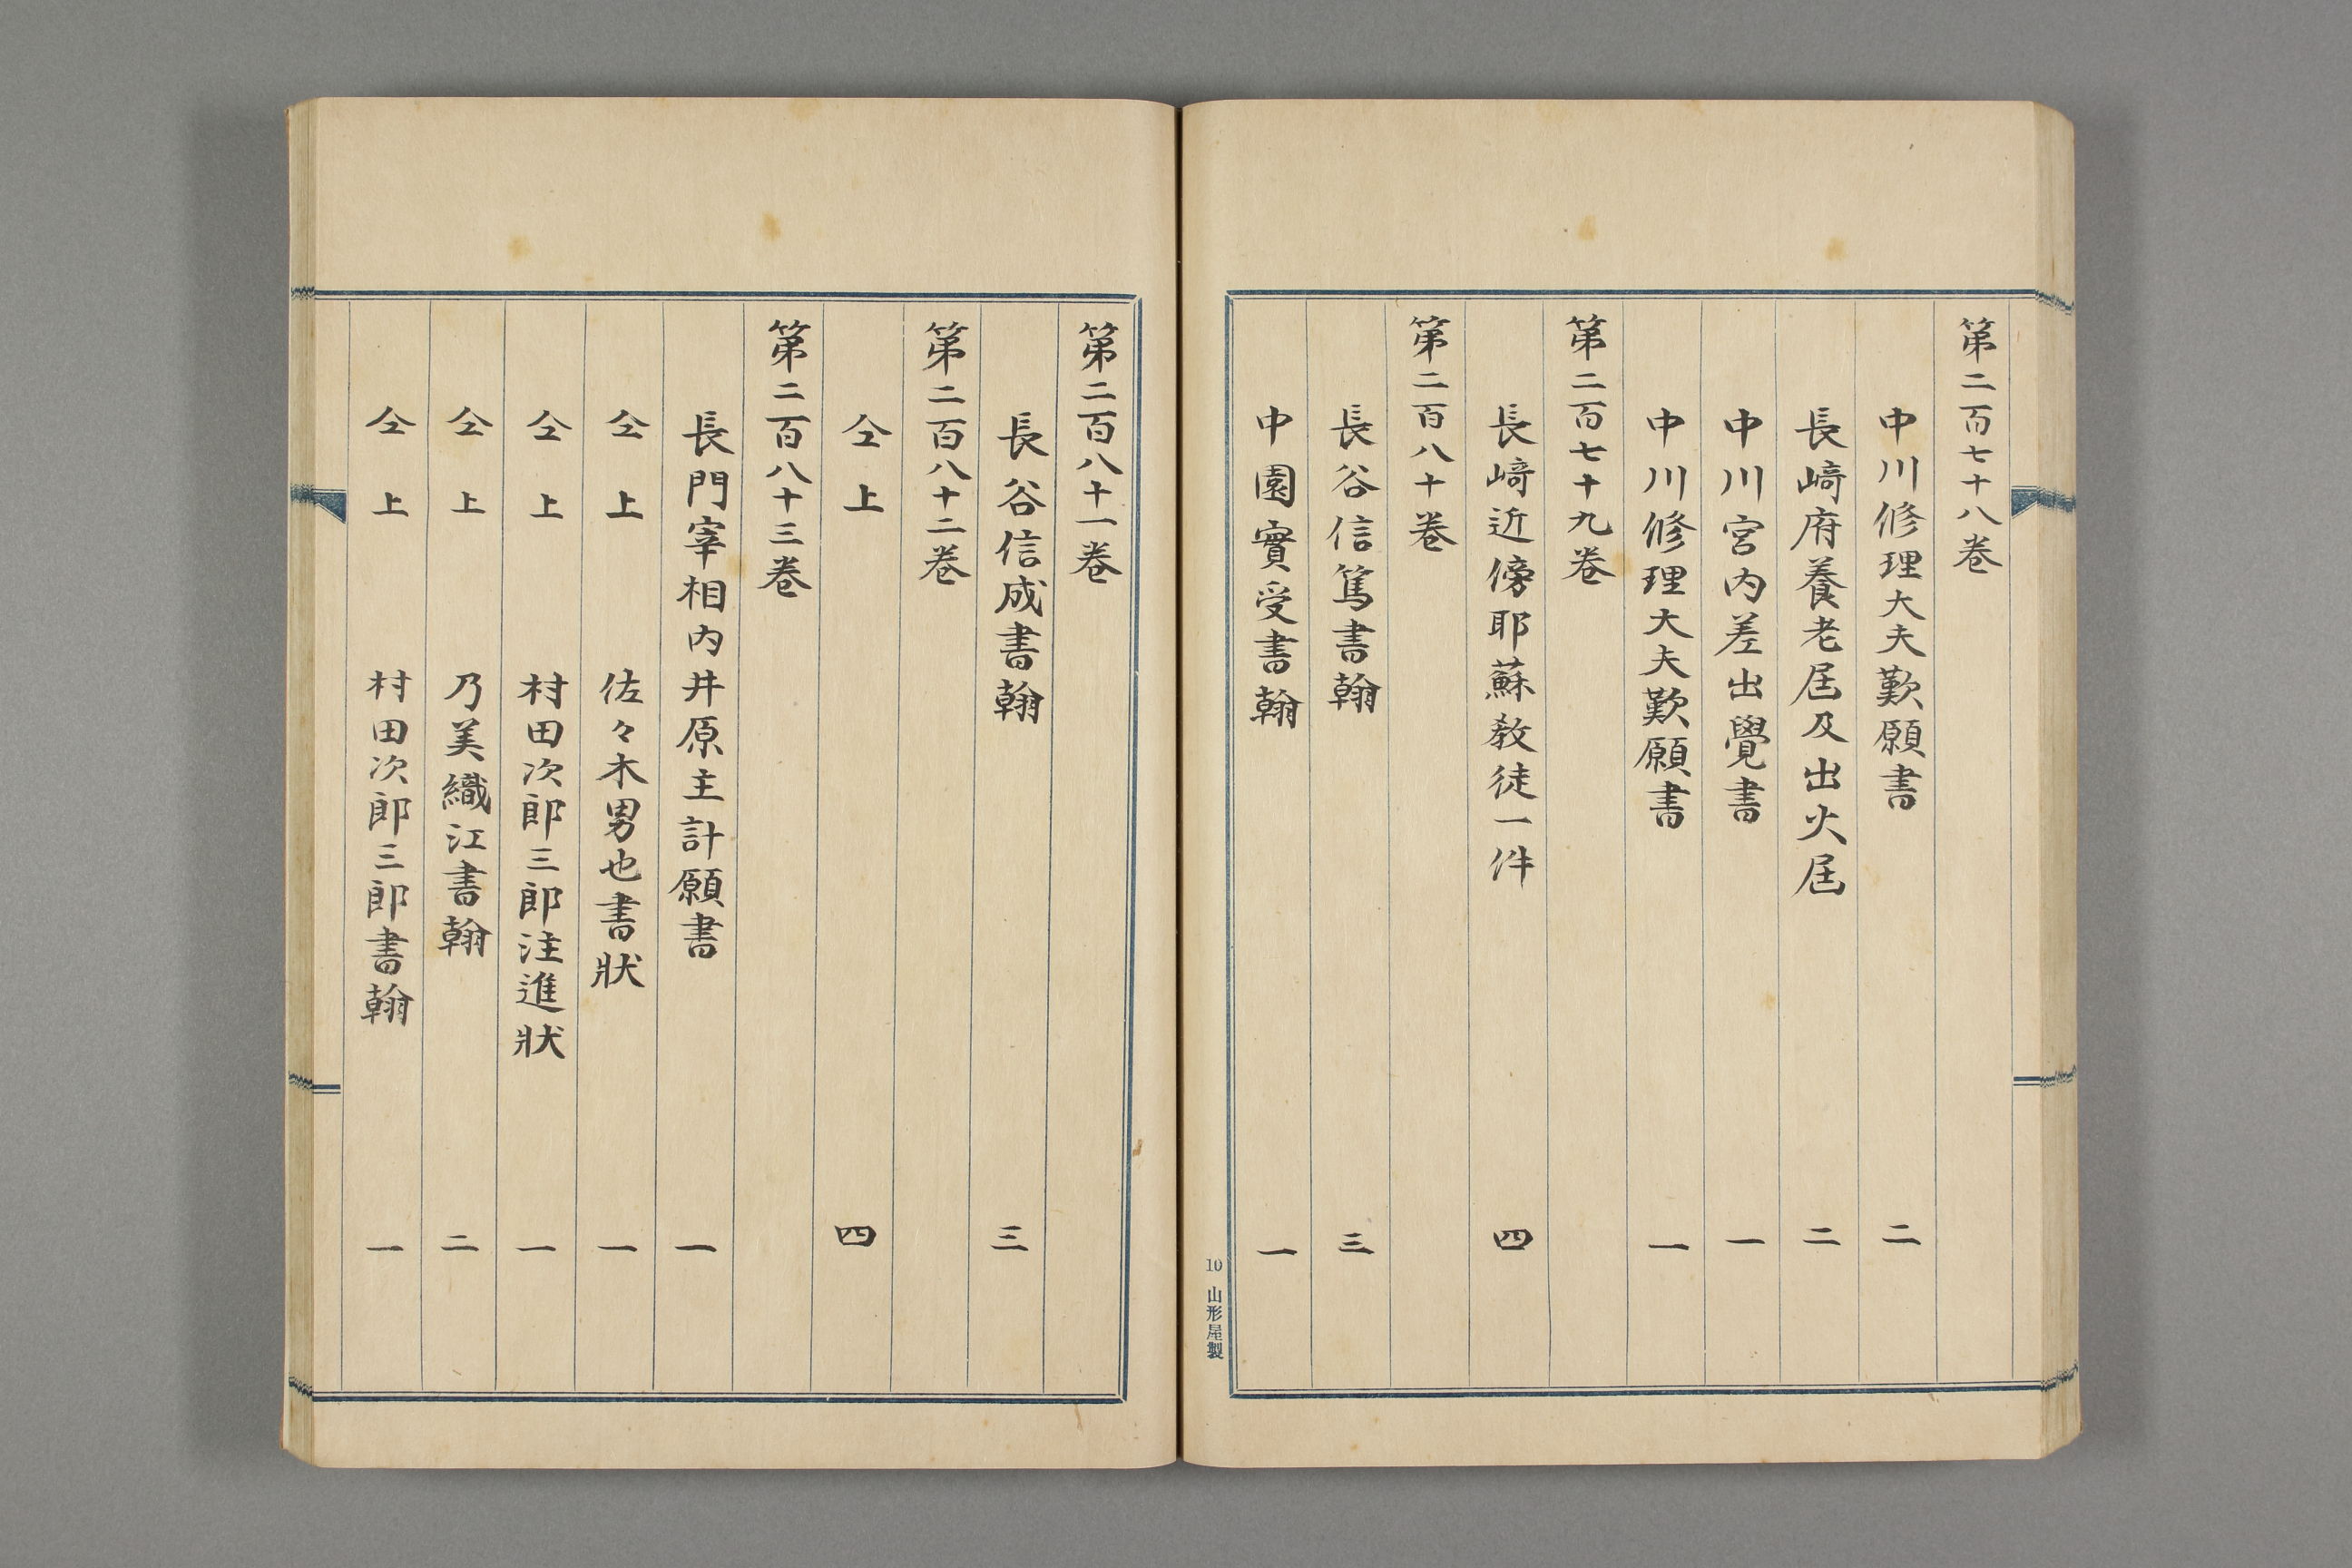 第二百七十八巻
中川修理大夫歎願書 二
長﨑府養老届及出火届 二
中川宮内差出覺書 一
中川修理大夫歎願書 一
第二百七十九巻
長﨑近傍耶蘇教徒一件 四
第二百八十巻
長谷信篤書翰 三
中園實受書翰 一
10 山形屋製
第二百八十一巻
長谷信成書翰 三
第二百八十二巻
仝上 四
第二百八十三巻
長門宰相内井原主計願書 一
仝上 佐々木男也書狀 一
仝上 村田次郎三郎注進狀 一
仝上 乃美織江書翰 二
仝上 村田次郎三郎書翰 一